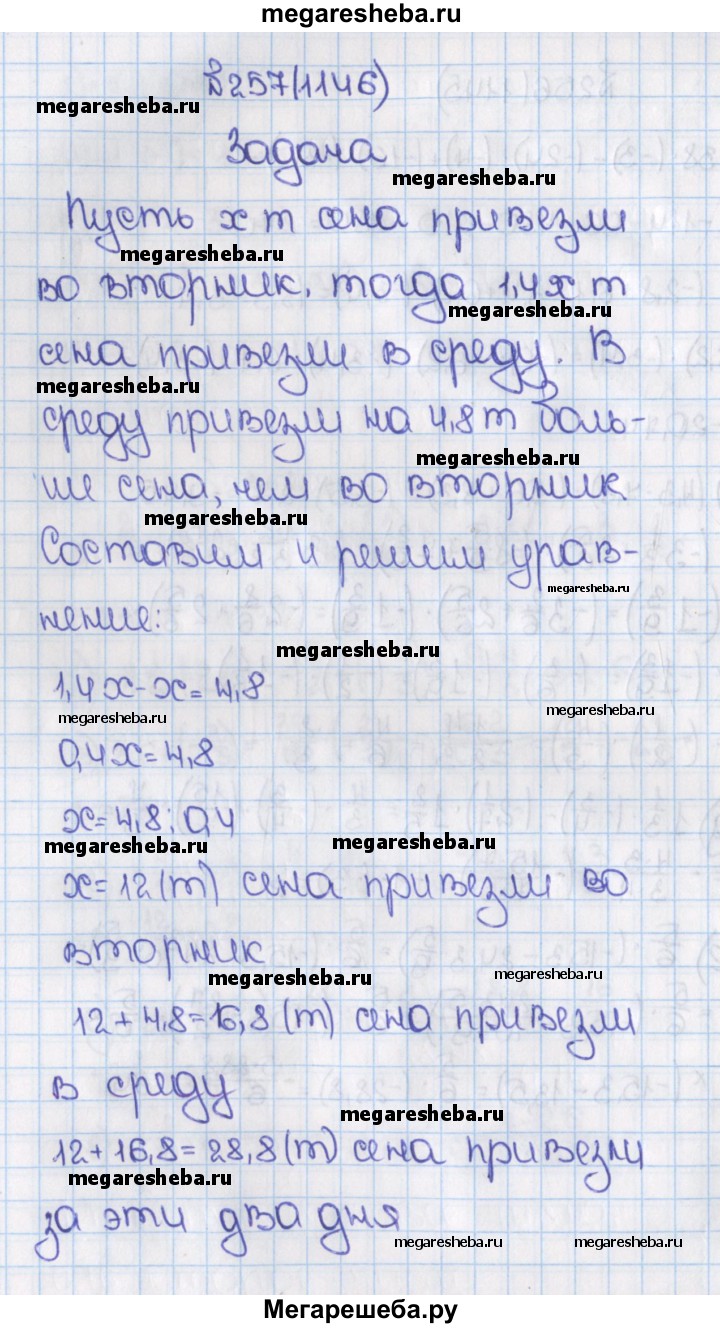 megaresheba.ru
№257(1146)
megaresheba.ru
Задача
megaresheba.ru
Пусть x т сена привезли
megaresheba.ru
во вторник, тогда 1,4x т
megaresheba.ru
сена привезли в среду. В
megaresheba.ru
среду привезли на 4,8 т боль-
megaresheba.ru
ше сена, чем во вторник
megaresheba.ru
Составим и решим урав-
megaresheba.ru
нение:
megaresheba.ru
1,4x-x=4,8
megaresheba.ru
megaresheba.ru
0,4x=4,8
x=4,8:0,4
megaresheba.ru
megaresheba.ru
x=12(т) сена привезли во
вторник
megaresheba.ru
megaresheba.ru
12+4,8=16,8(т) сена привезли
в среду
megaresheba.ru
12+16,8=28,8(т) сена привезли
megaresheba.ru
за эти два дня
megaresheba.ru
megaresheba.ru
Мегарешеба.ру